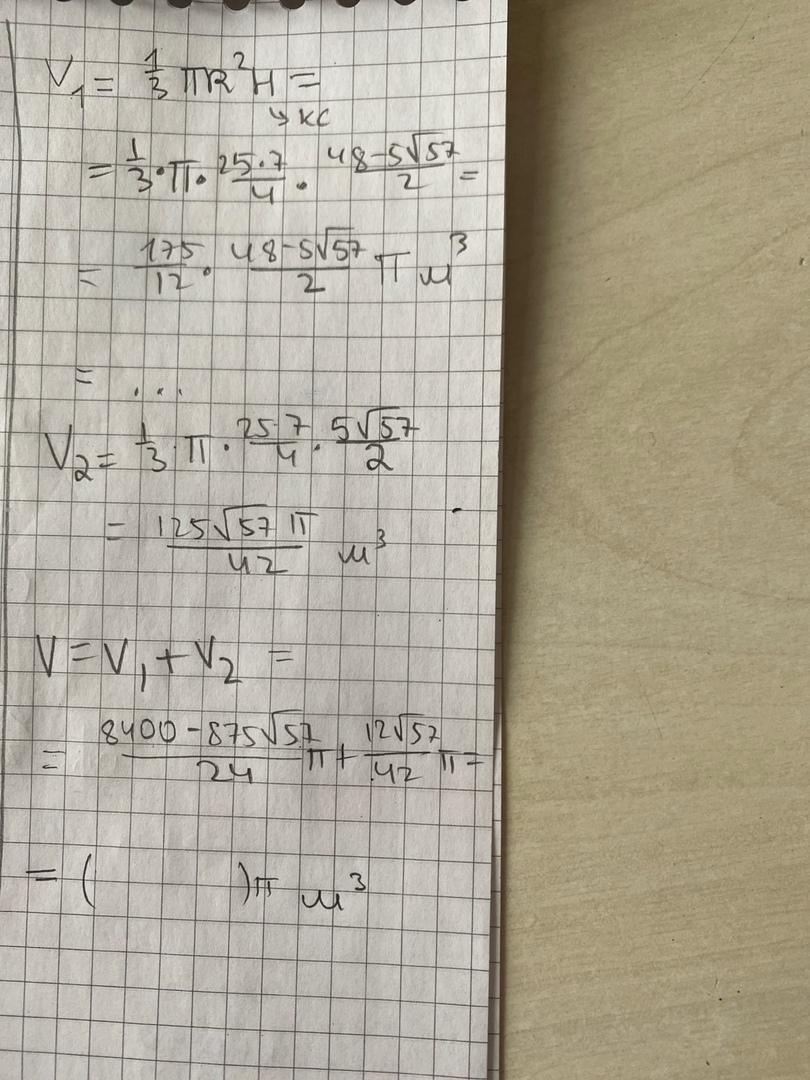 V₁ = 1/3 πR²H =
↳ KC
= 1/3 · π · 25·7/4 · 48-5√57/2 =
= 175/12 · 48-5√57/2 π м³
= ...
V₂ = 1/3 · π · 25·7/4 · 5√57/2
= 125√57 π/42 м³
V = V₁ + V₂ =
= 8400-875√57/24 π + 12√57/42 π =
= ( )π м³